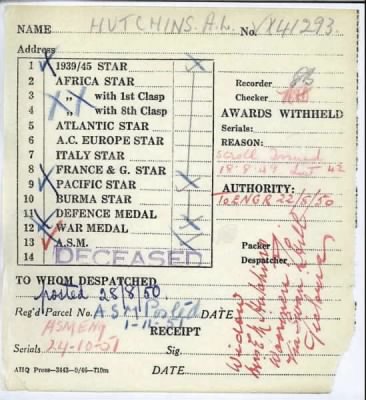 NAME HUTCHINS. A.L. No. VX41293.
Address
1 1939/45 STAR
2 AFRICA STAR
3 " with 1st Clasp
4 " with 8th Clasp
5 ATLANTIC STAR
6 A.C. EUROPE STAR
7 ITALY STAR
8 FRANCE & G. STAR
9 PACIFIC STAR
10 BURMA STAR
11 DEFENCE MEDAL
12 WAR MEDAL
13 A.S.M.
14 DECEASED
Recorder
Checker
AWARDS WITHHELD
Serials:
REASON:
Scroll Issued
18.8.49 List 42
AUTHORITY:
To ENGR 22/5/50
Packer
Despatcher
Widow
Mrs E.
Victoria
TO WHOM DESPATCHED
posted 28/8/50
Reg'd Parcel No. A.S.M. Posted DATE
1-11-51
RECEIPT
ASM ENG
Serials 24-10-51 Sig.
AHQ Press—3443—9/46—710m DATE